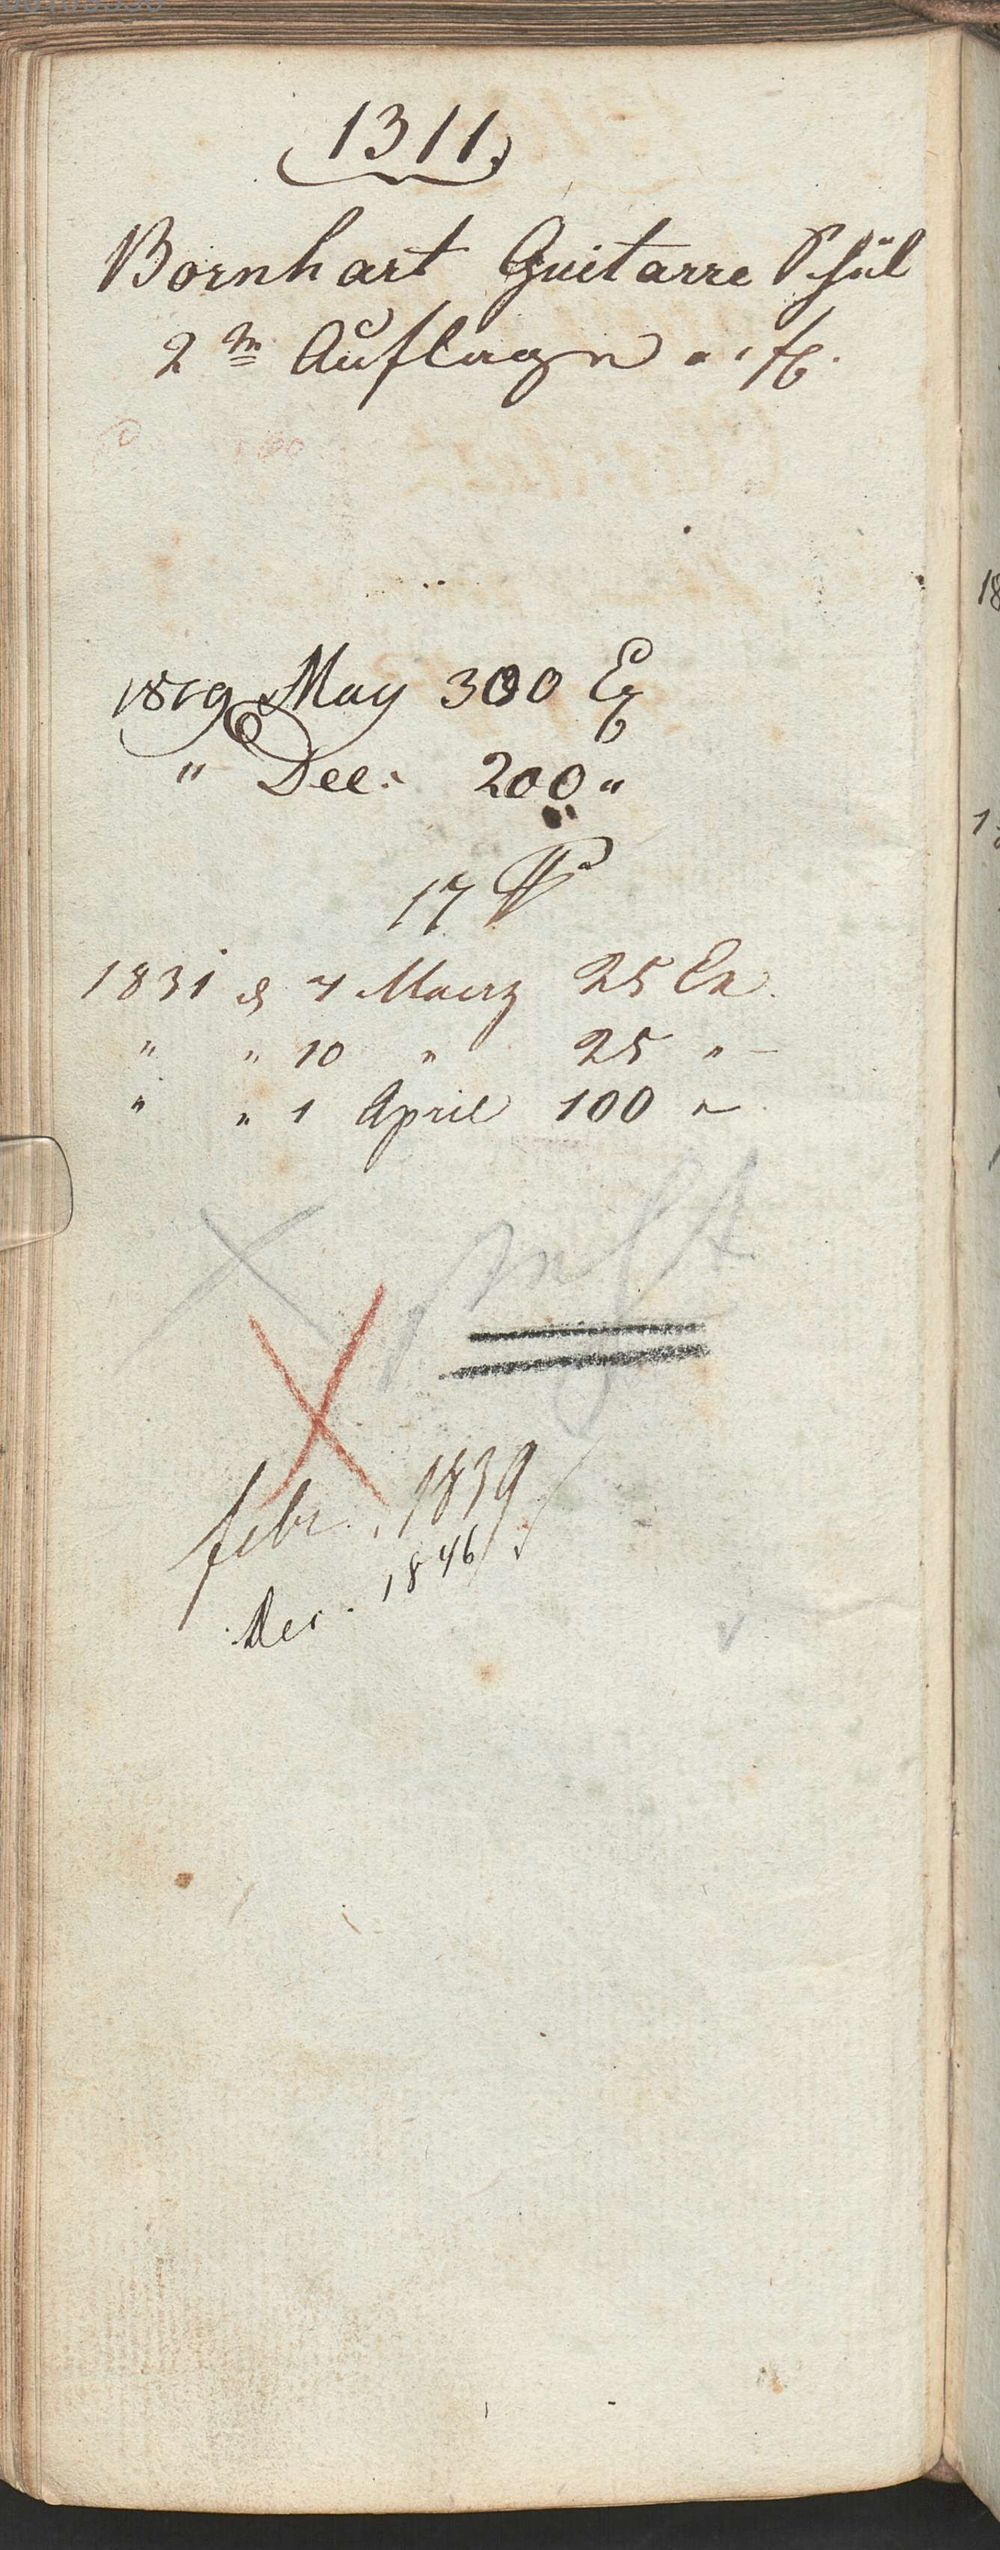 1311.
Bornhart Guitarre Schul
2te Auflage
1819 May 300 Ex
" Dec: 200 "
17
1831 d 7 Maerz 25 Ex.
" " 10 " 25 " -
" " 1 April 100 "
febr. 1839
Dec. 1846